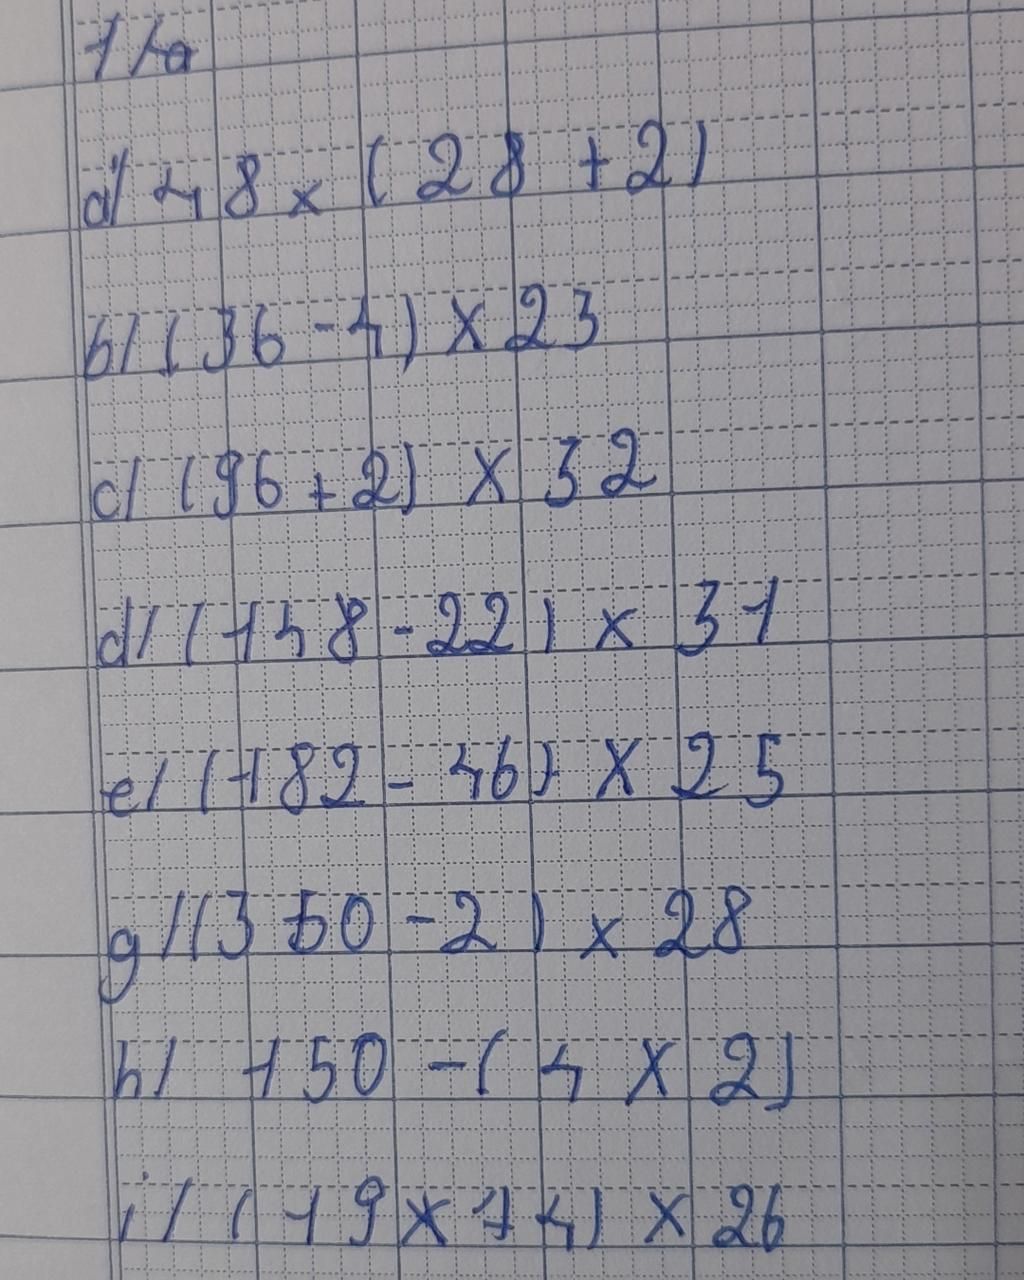 1/a
a/ 48 x (28 + 2)
b/ (36 - 4) x 23
c/ (96 + 2) x 32
d/ (148 - 22) x 31
e/ (182 - 46) x 25
g/ (350 - 2) x 28
h/ 150 - (4 x 2)
i/ (19 x 14) x 26